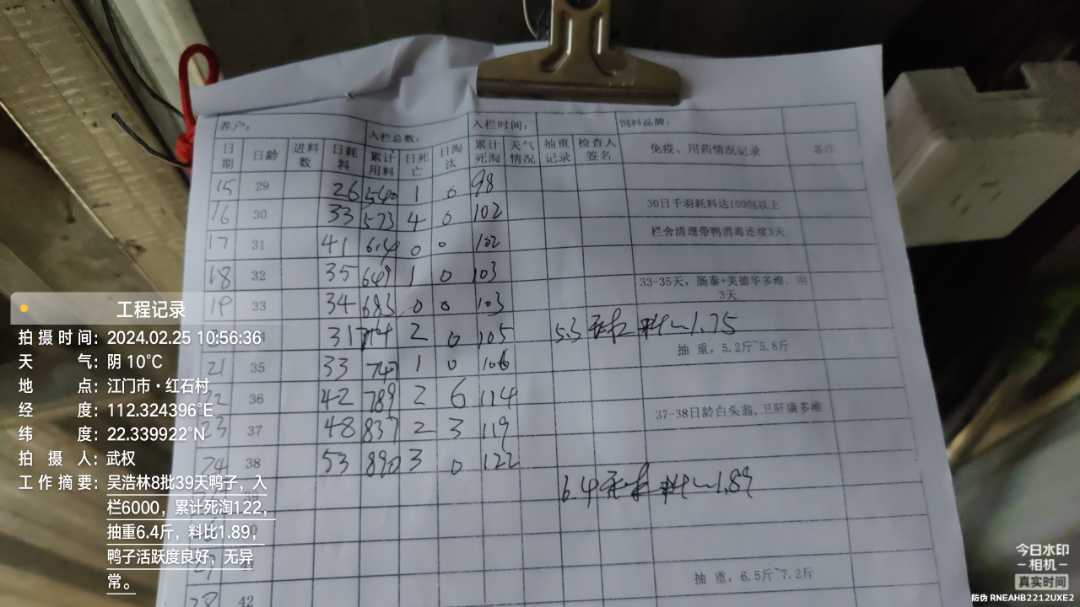 养户： 入栏总数： 入栏时间： 饲料品牌：
日期 日龄 进料数 日耗料 累计用料 日死亡 日淘汰 累计死淘 天气情况 抽重记录 检查人签名 免疫、用药情况记录 备注
15 29 26 540 1 0 98
16 30 33 573 4 0 102 30日千羽耗料达1000%以上
17 31 41 614 0 0 102 栏舍清理带鸭消毒连续3天
18 32 35 649 1 0 103 33-35天，肠泰+美德华多维，用3天
19 33 34 683 0 0 103
31 714 2 0 105 5.3 料比1.75 抽 重，5.2斤~5.8斤
21 35 33 747 1 0 106
22 36 42 789 2 6 114
23 37 48 837 2 3 119 37-38日龄白头翁，卫肝康多维
24 38 53 890 3 0 122
6.4 料比1.89
抽 重，6.5斤~7.2斤
28 42
工程记录
拍摄时间：2024.02.25 10:56:36
天 气：阴 10°C
地 点：江门市·红石村
经 度：112.324396°E
纬 度：22.339922°N
拍 摄 人：武权
工作摘要：吴浩林8批39天鸭子，入
栏6000，累计死淘122，
抽重6.4斤，料比1.89，
鸭子活跃度良好，无异
常。
今日水印
相机
真实时间
防伪 RNEAHB2212UXE2